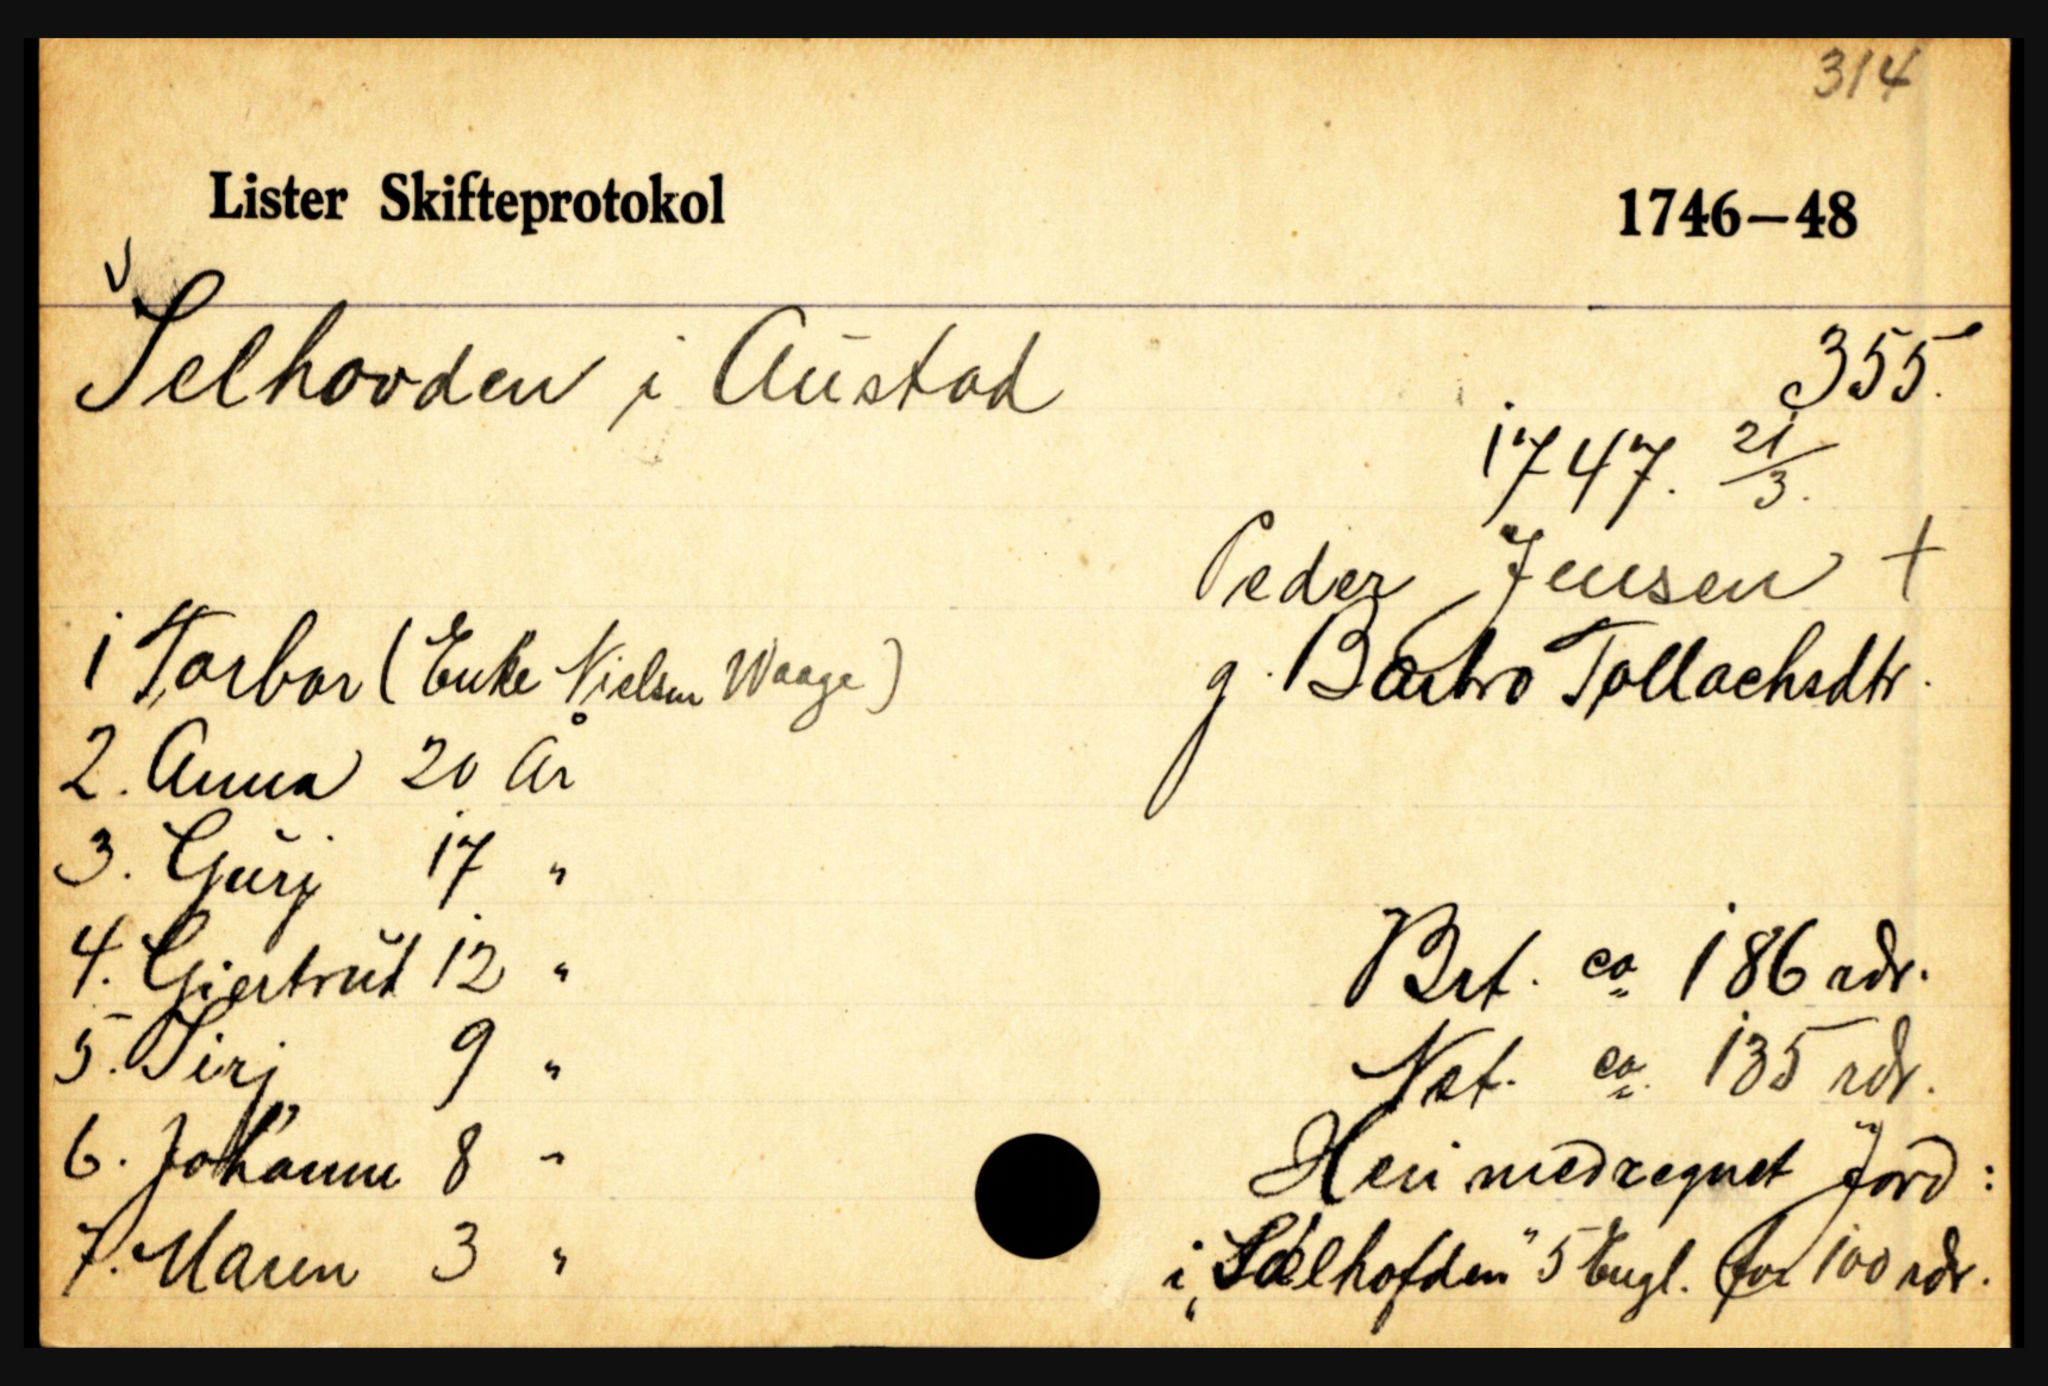 314
Lister Skifteprotokol 1746-48
Selhovden i Austad 355.
1747. 21/3.
Peder Jensen +
g. Barbro Tollachsdtr.
1 Torbor (Enke Nielsen Waage)
2. Anna 20 År
3. Gurj 17 "
4. Giertrud 12 "
5. Sirj 9 "
6. Johanne 8 "
7. Maren 3 "
Brt. ca 186 rdr.
Net. ca. 135 rdr.
Heri medregnet Jord:
i „Sælhofden" 5 Engl. for 100 rdr.